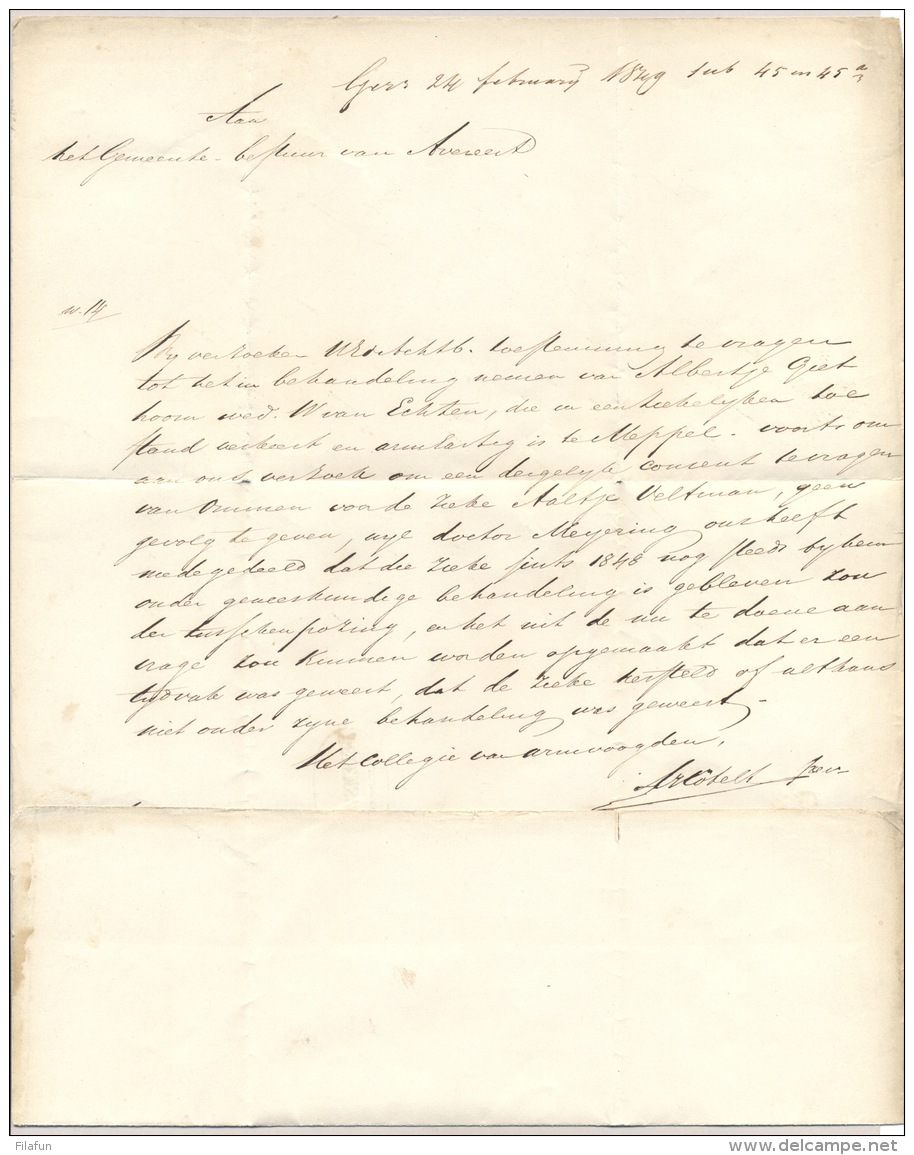 24 february 1849 sub 45 en 45 a
Aan
het Gemeente-bestuur van Avereest
no. 14
By verzoeken UEdAchtb. toestemming te vragen
tot het in behandeling nemen van Albertje Giet
hoorn wed. W van Echten, die in een ziekelyken toe
stand verkeert en armlastig is te Meppel. voorts om
aan ons verzoek om een dergelyk consent te vragen
van Ommen voor de zieke Aaltje Veltman, geen
gevolg te geven, wyl doctor Meyering ons heeft
medegedeeld dat die zieke sints 1848 nog steeds by hem
onder geneeskundige behandeling is gebleven zon
der tusschenpozing, en het uit de nu te doene aan
vrage zou kunnen worden opgemaakt dat er een
tydvak was geweest, dat de zieke hersteld of althans
niet onder zyne behandeling was geweest.
Het Collegie van armvoogden,
Filafun
www.delcampe.net